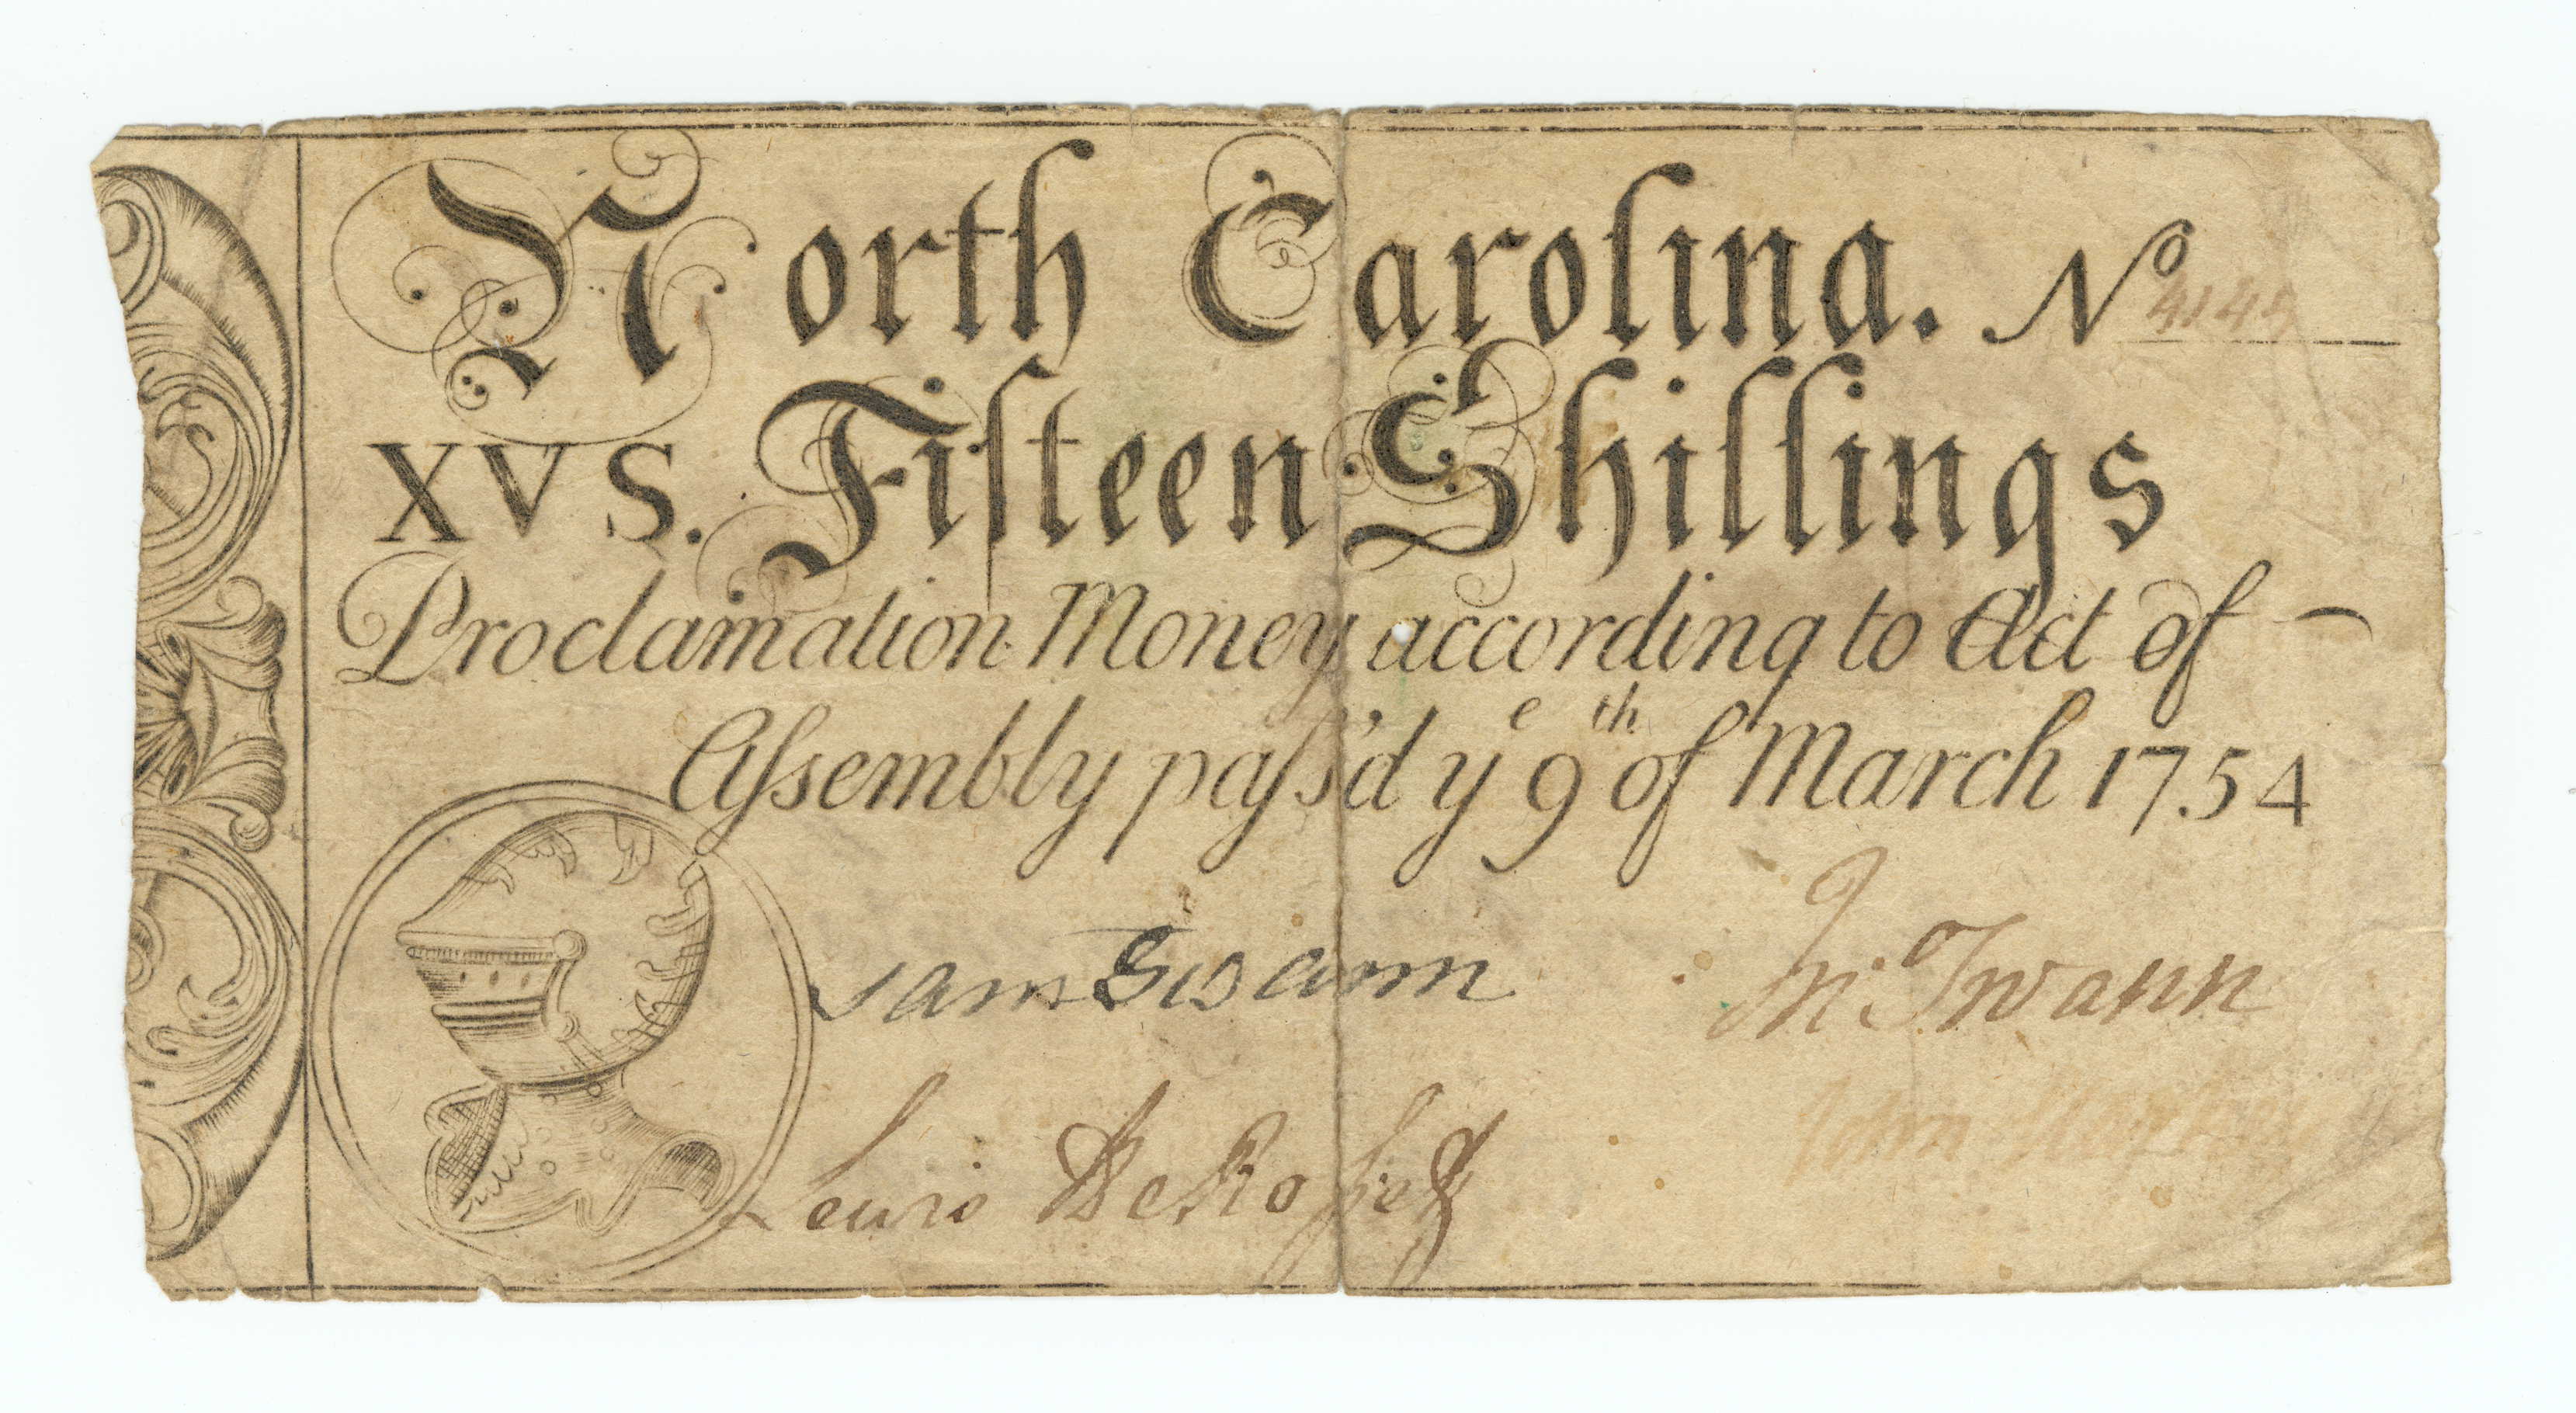 North Carolina. No 4144
XVS. Fifteen Shillings
Proclamation Money according to Act of
Aſsembly paſs'd ye 9th of March 1754
Sam Swann Jn. Swann
Lewis DeRoſset John